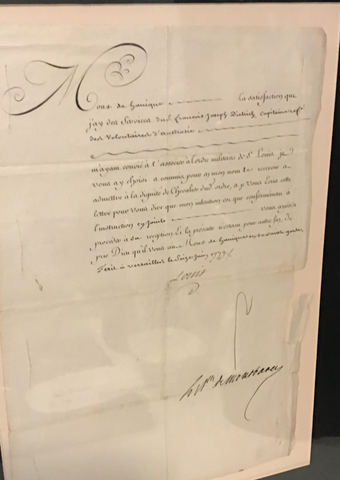 Mons. de hanique la satisfaction que
j'ay des services du S. François Joseph Dietrich, capitaine
des volontaires d'austrasie
m'ayant convié à l'associer à l'ordre militaire de St Louis, je
vous ay choisi et commis pour en mon nom le recevoir et
admettre à la dignité de Chevalier dud. ordre, et je vous écris cette
lettre pour vous dire que mon intention est que conformément à
l'instruction cy jointe vous aiiez à
procéder à sa reception. Et la présente n'étant pour autre fin, je
prie Dieu qu'il vous ait Mons. de hanique en sa sainte garde.
Écrit à versailles le Seize juin
Louis